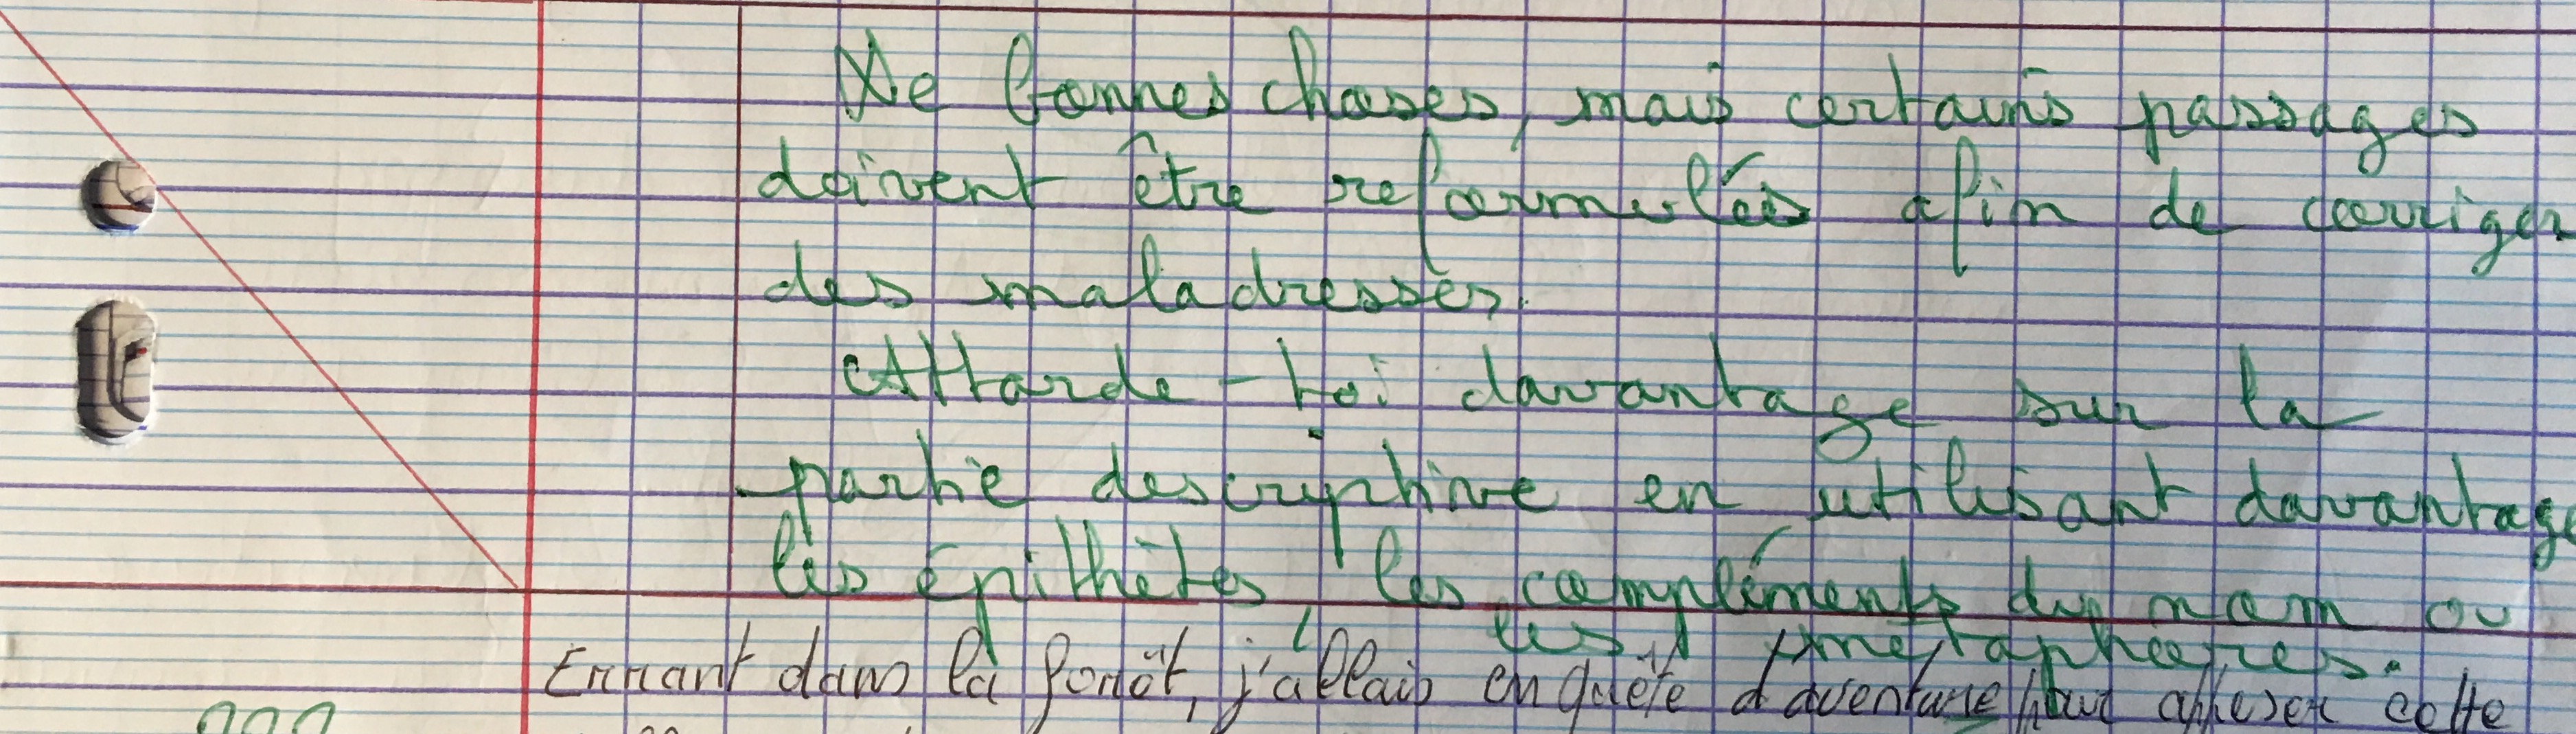 De bonnes choses, mais certains passages
doivent être reformulés afin de corriger
des maladresses.
Attarde-toi davantage sur la
partie descriptive en utilisant davantage
les épithètes, les compléments du nom ou
les métaphores.
Errant dans la forêt, j'allais en quête d'aventure pour apaiser cette
???